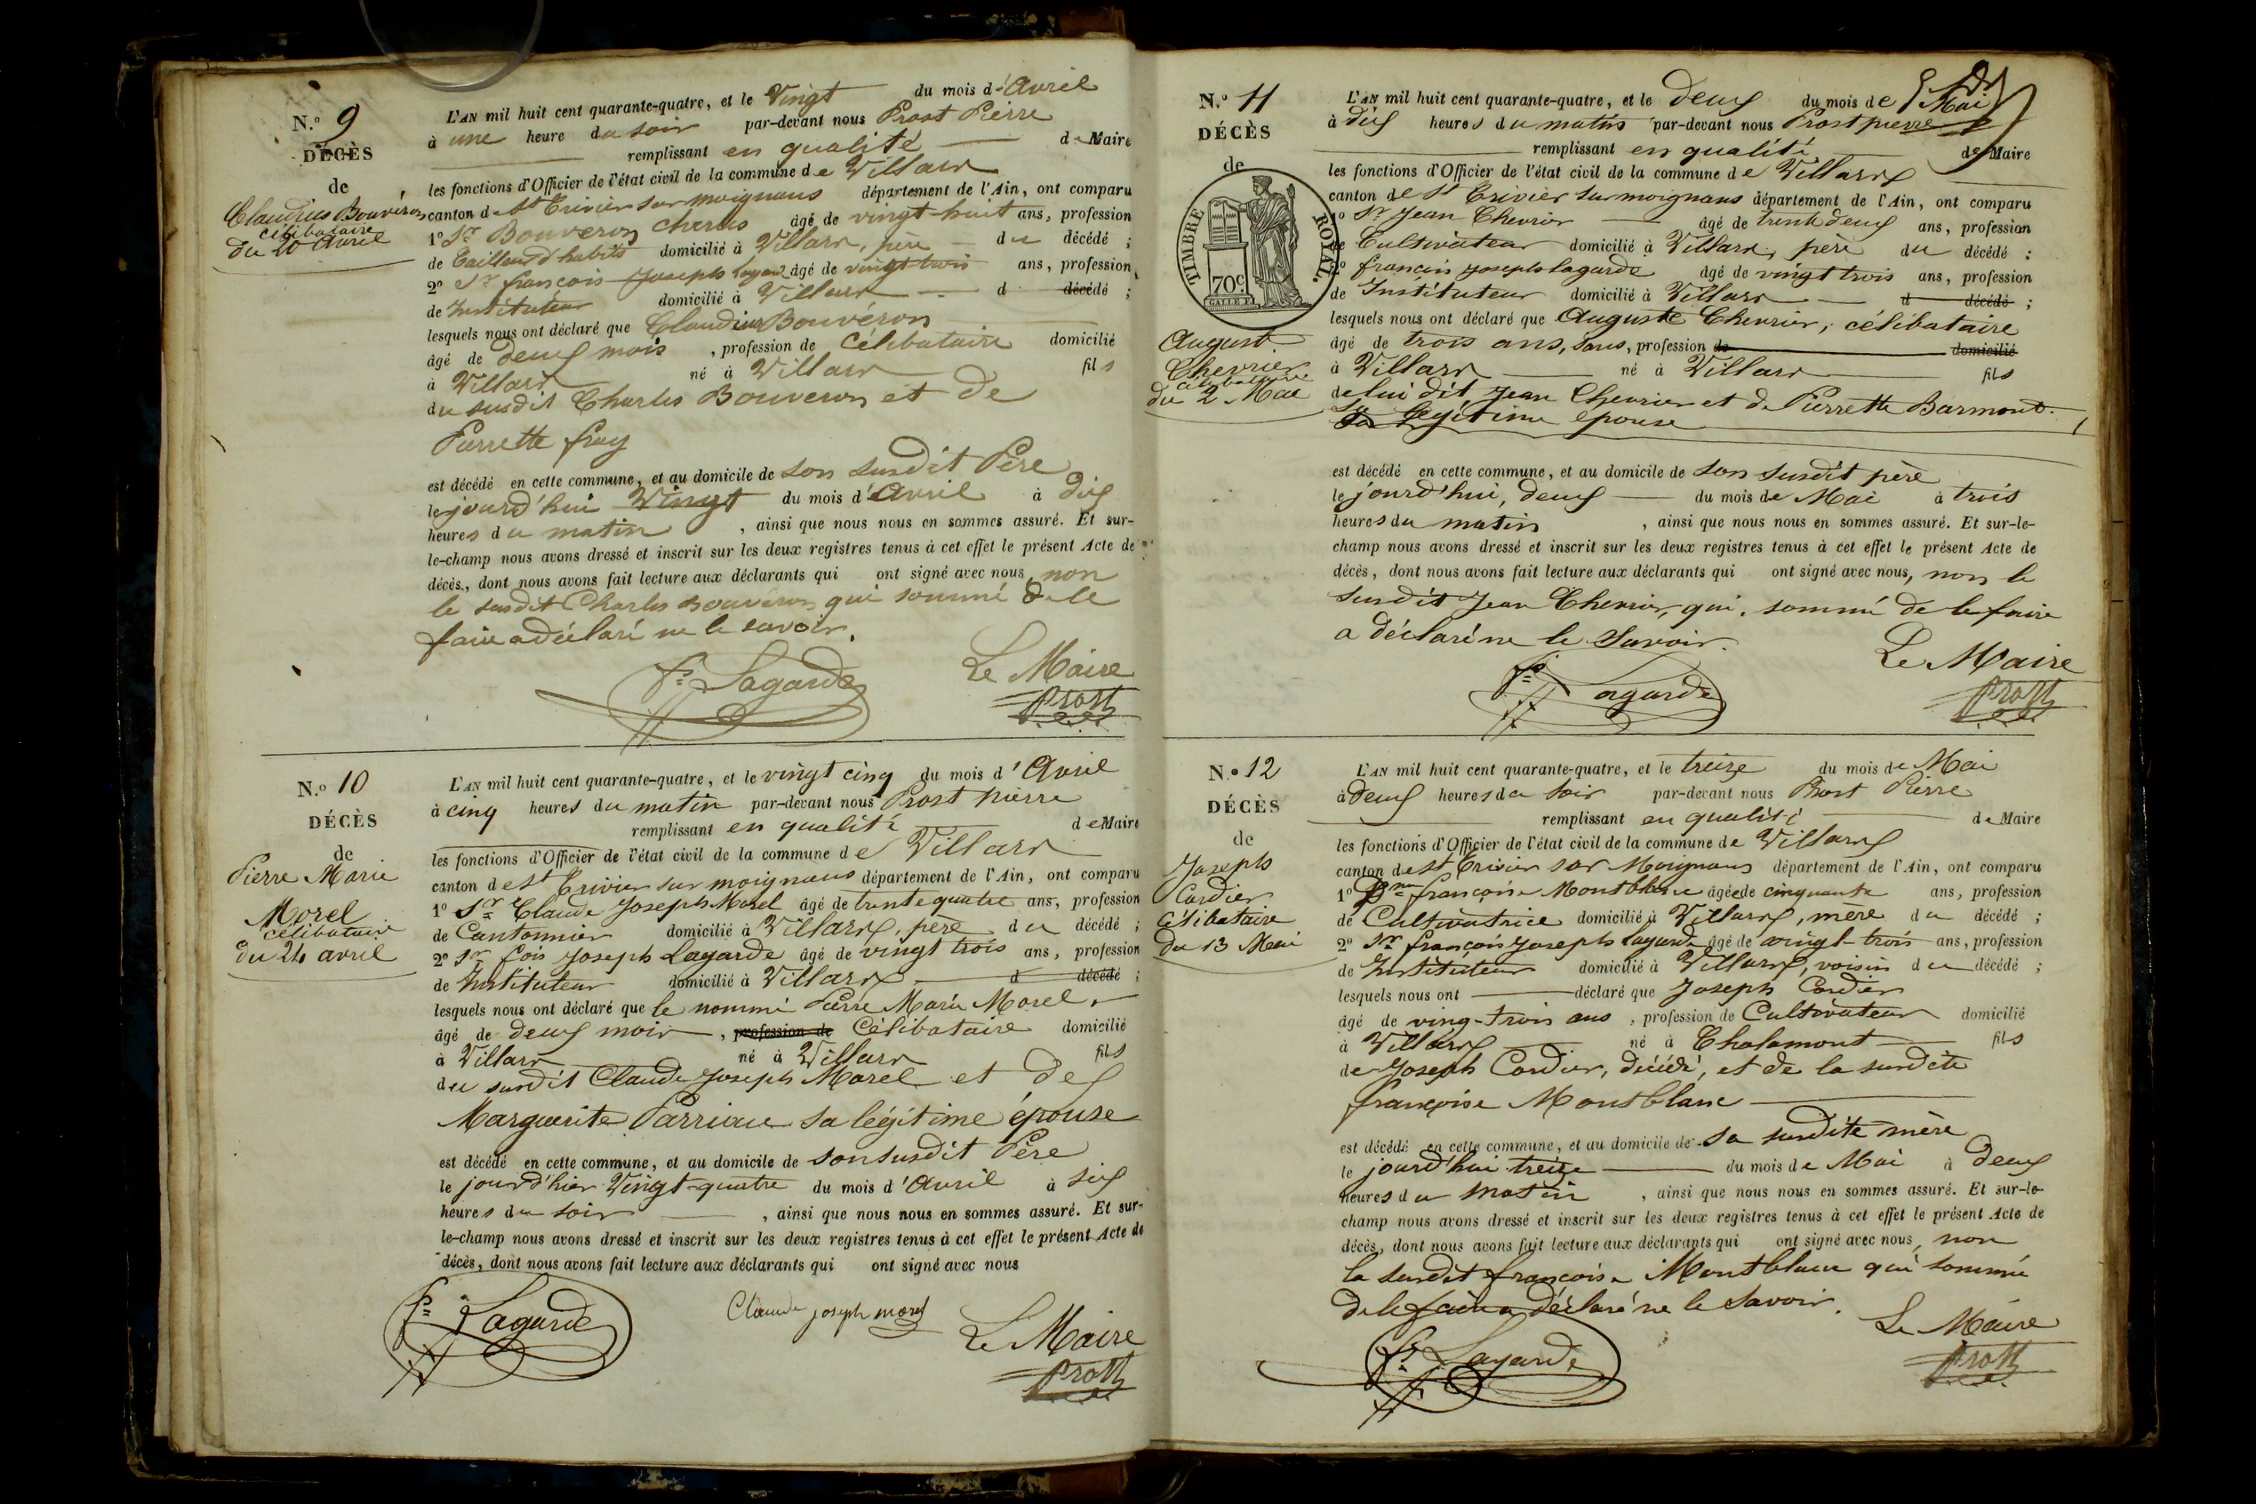 N.º 9
DÉCÈS
de
Claudius Bouvéron
célibataire
du 20 avril
L'AN mil huit cent quarante-quatre, et le Vingt du mois d'Avril
à une heure du soir par-devant nous Prost Pierre
remplissant en qualité de Maire
les fonctions d'Officier de l'état civil de la commune de Villars
canton de St Trivier sur moignans département de l'Ain, ont comparu
1º Sr Bouveron Charles âgé de vingt-huit ans, profession
de Tailleur d'habits domicilié à Villars, père du décédé ;
2º Sr françois Joseph Lagarde âgé de vingt trois ans, profession
de Instituteur domicilié à Villars d décédé ;
lesquels nous ont déclaré que Claudius Bouvéron
âgé de deux mois, profession de Célibataire domicilié
à Villars né à Villars fils
du susdit Charles Bouveron et de
Pierrette fray
est décédé en cette commune, et au domicile de son susdit Père
le jourd'hui Vingt du mois d'Avril à dix
heures du matin, ainsi que nous nous en sommes assuré. Et sur-
le-champ nous avons dressé et inscrit sur les deux registres tenus à cet effet le présent Acte de
décès, dont nous avons fait lecture aux déclarants qui ont signé avec nous, non
le susdit Charles Bouvéron qui sommé de le
faire a déclaré ne le savoir.
Le Maire
fs Lagarde
Prost
N.º 10
DÉCÈS
de
Pierre Marie
Morel
célibataire
du 24 avril
L'AN mil huit cent quarante-quatre, et le vingt cinq du mois d'Avril
à cinq heures du matin par-devant nous Prost pierre
remplissant en qualité de Maire
les fonctions d'Officier de l'état civil de la commune de Villars
canton de St Trivier sur moignans département de l'Ain, ont comparu
1º Sr Claude Joseph Morel âgé de trente quatre ans, profession
de Cantonnier domicilié à Villars, père du décédé ;
2º Sr fcois Joseph Lagarde âgé de vingt trois ans, profession
de Instituteur domicilié à Villars d décédé ;
lesquels nous ont déclaré que le nommé Pierre Marie Morel
âgé de deux mois, profession de Célibataire domicilié
à Villars né à Villars fils
du susdit Claude Joseph Morel et de
Marguerite Parriaux sa légitime épouse
est décédé en cette commune, et au domicile de son susdit Père
le jour d'hier Vingt-quatre du mois d'Avril à six
heures du soir, ainsi que nous nous en sommes assuré. Et sur-
le-champ nous avons dressé et inscrit sur les deux registres tenus à cet effet le présent Acte de
décès, dont nous avons fait lecture aux déclarants qui ont signé avec nous
fs Lagarde
Claude joseph morel
Le Maire
Prost
N.º 11
DÉCÈS
de
TIMBRE ROYAL
70c.
August.
Chevrier
célibataire
du 2 Mai
L'AN mil huit cent quarante-quatre, et le deux du mois de Mai
à dix heures du matin par-devant nous Prost pierre
remplissant en qualité de Maire
les fonctions d'Officier de l'état civil de la commune de Villars
canton de St Trivier sur moignans département de l'Ain, ont comparu
1º Sr Jean Chevrier âgé de trente deux ans, profession
de Cultivateur domicilié à Villars, père du décédé ;
2º françois joseph lagarde âgé de vingt trois ans, profession
de Instituteur domicilié à Villars d décédé ;
lesquels nous ont déclaré que Auguste Chevrier, célibataire
âgé de trois ans, sans, profession de domicilié
à Villars né à Villars fils
de lui dit Jean Chevrier et de Pierrette Barmont.
Sa légitime épouse
est décédé en cette commune, et au domicile de son susdit père
le jourd'hui, deux du mois de Mai à trois
heures du matin, ainsi que nous nous en sommes assuré. Et sur-le-
champ nous avons dressé et inscrit sur les deux registres tenus à cet effet le présent Acte de
décès, dont nous avons fait lecture aux déclarants qui ont signé avec nous, non le
susdit Jean Chevrier, qui, sommé de le faire
a déclaré ne le Savoir.
Le Maire
fs Lagarde
Prost
N.º 12
DÉCÈS
de
Joseph
Cordier
Célibataire
du 13 Mai
L'AN mil huit cent quarante-quatre, et le treize du mois de Mai
à deux heures du soir par-devant nous Prost Pierre
remplissant en qualité de Maire
les fonctions d'Officier de l'état civil de la commune de Villars
canton de St Trivier sur Moignans département de l'Ain, ont comparu
1º Dme françoise Montblanc âgée de cinquante ans, profession
de Cultivatrice domicilié à Villars, mère du décédé ;
2º Sr françois Joseph Lagarde âgé de vingt-trois ans, profession
de Instituteur domicilié à Villars, voisin du décédé ;
lesquels nous ont déclaré que Joseph Cordier
âgé de ving-trois ans, profession de Cultivateur domicilié
à Villars né à Chalamont fils
de Joseph Cordier, décédé, et de la susdite
françoise Montblanc
est décédé en cette commune, et au domicile de sa susdite mère
le jourd'hui treize du mois de Mai à deux
heures du matin, ainsi que nous nous en sommes assuré. Et sur-le-
champ nous avons dressé et inscrit sur les deux registres tenus à cet effet le présent Acte de
décès, dont nous avons fait lecture aux déclarants qui ont signé avec nous, non
la susdit françoise Montblanc qui sommé
de le faire a déclaré ne le savoir.
Le Maire
fs Lagarde
Prost